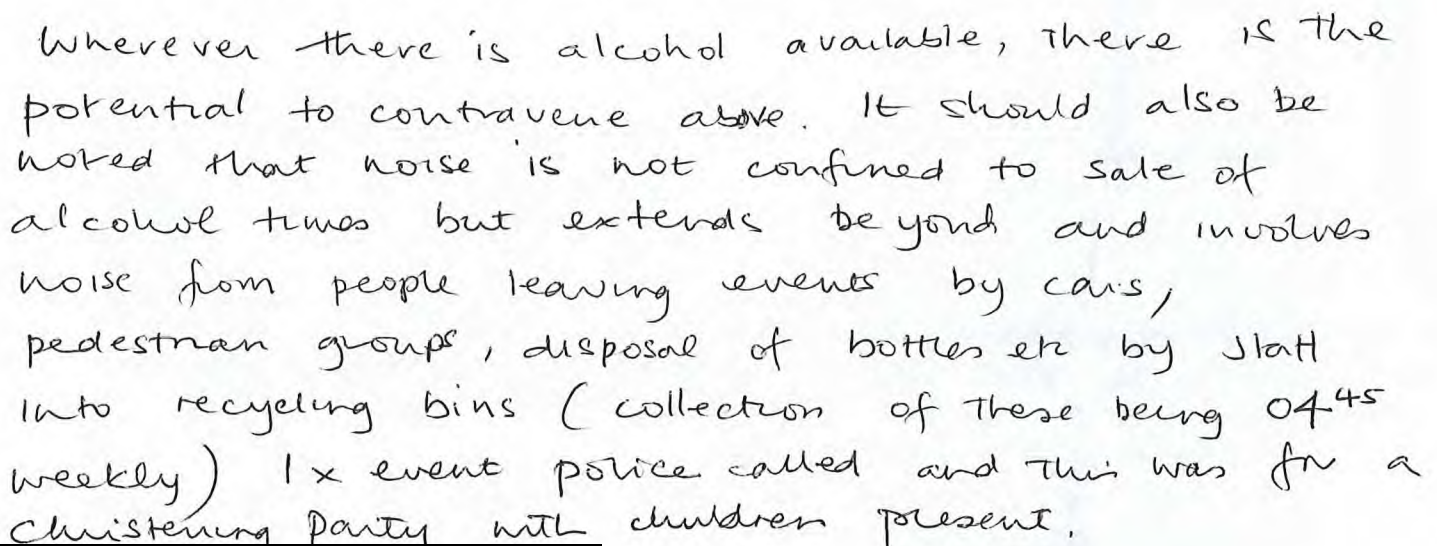 Wherever there is alcohol available, There is the
potential to contravene above. It should also be
noted that noise is not confined to sale of
alcohol times but extends beyond and involves
noise from people leaving events by cars,
pedestrian groups, disposal of bottles etc by staff
into recycling bins (collection of These being 04.45
weekly) 1x event police called and This was for a
Christening Party with children present.